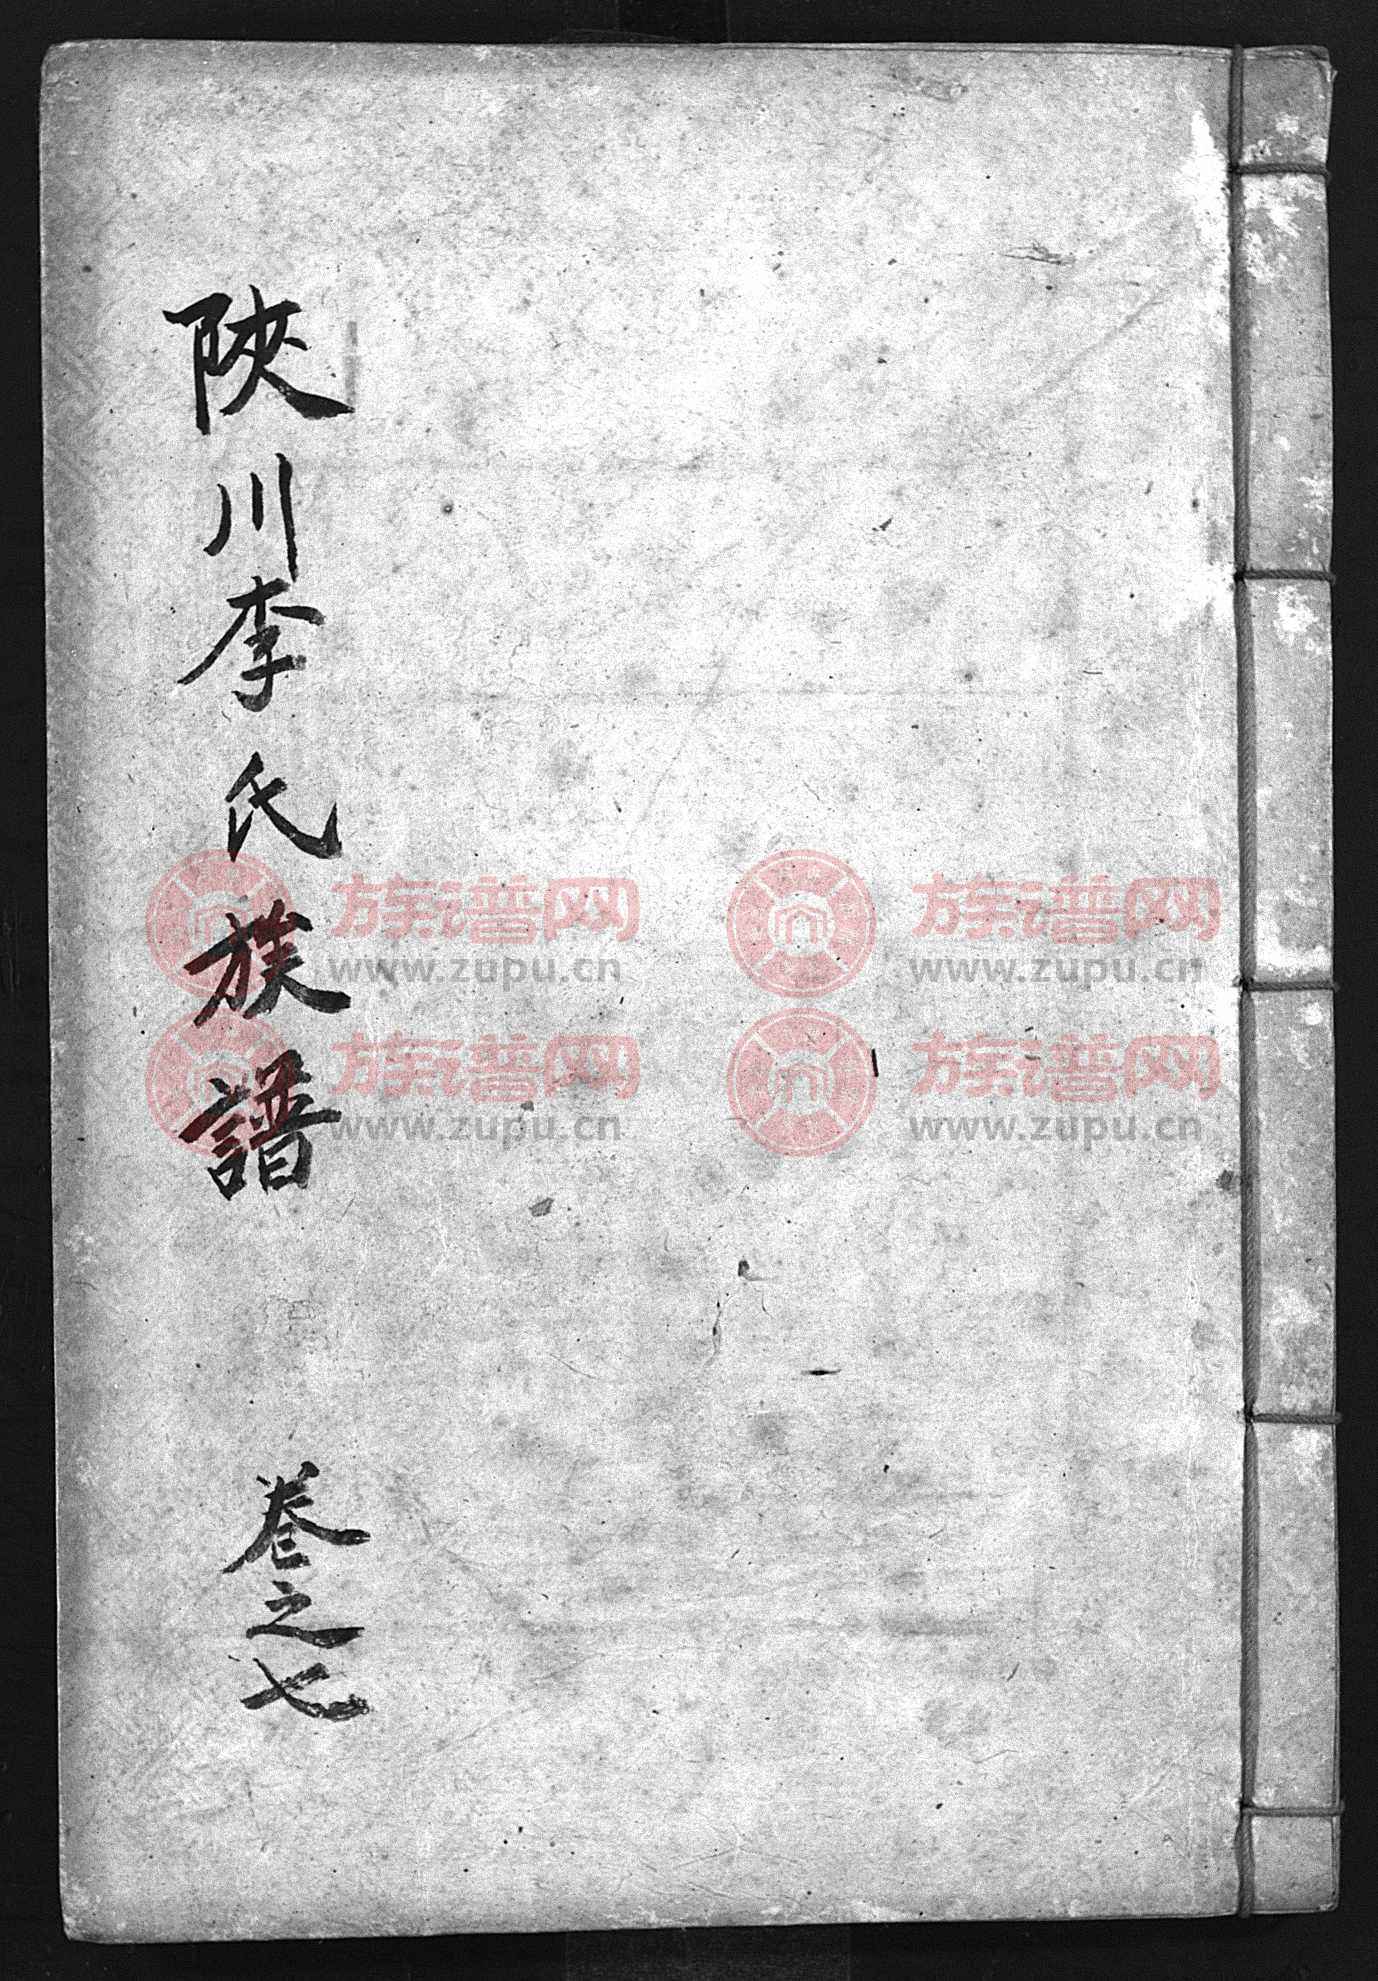 陜川李氏族譜
卷之七
族谱网
www.zupu.cn
族谱网
www.zupu.cn
族谱网
www.zupu.cn
族谱网
www.zupu.cn